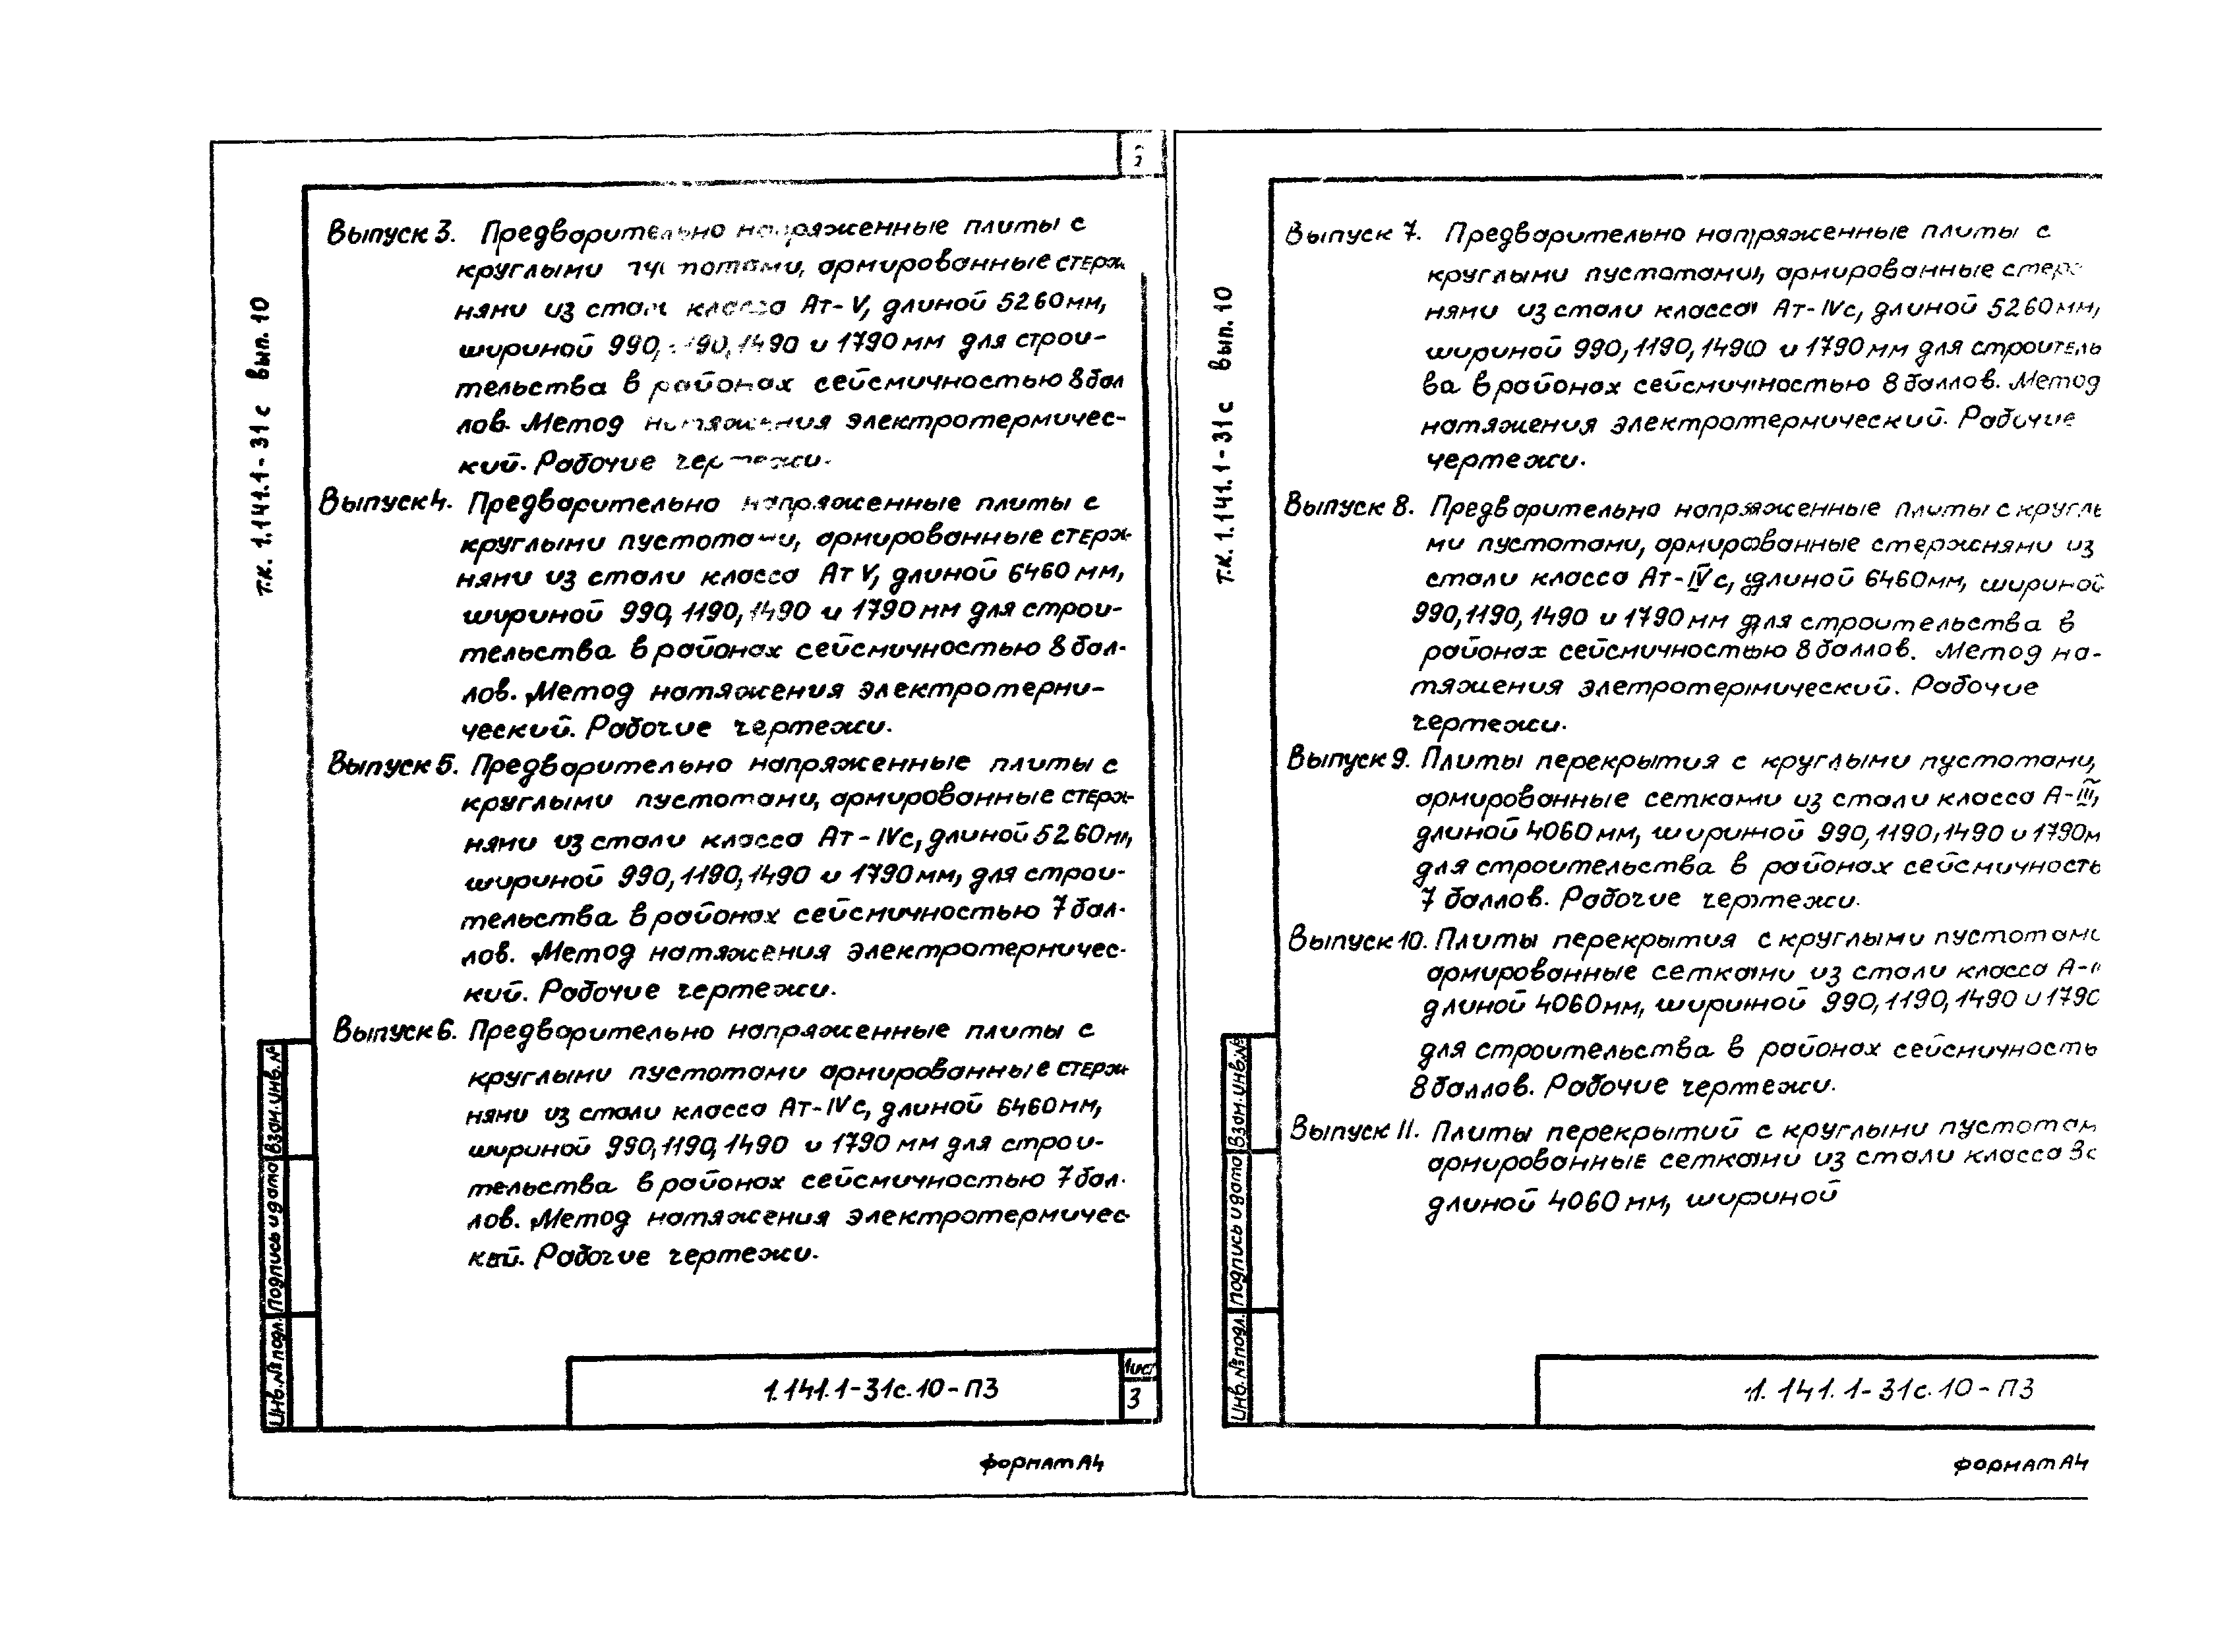 Т.К. 1.141.1-31с вып. 10
Выпуск 3. Предварительно напряженные плиты с
круглыми армированные стерж
нями из класса Ат-V, длиной 5260мм,
шириной 990, 1490 и 1790мм для строи-
тельства в районах сейсмичностью 8 бал
лов. Метод натяжения электротермичес-
кий. Рабочие чертежи.
Выпуск 4. Предварительно напряженные плиты с
круглыми пустотами, армированные стерж-
нями из стали класса Ат V, длиной 6460мм,
шириной 990, 1190, 1490 и 1790мм для строи-
тельства в районах сейсмичностью 8 бал-
лов. Метод натяжения электротерми-
ческий. Рабочие чертежи.
Выпуск 5. Предварительно напряженные плиты с
круглыми пустотами, армированные стерж-
нями из стали класса Ат-IVс, длиной 5260мм,
шириной 990, 1190, 1490 и 1790мм, для строи-
тельства в районах сейсмичностью 7 бал-
лов. Метод натяжения электротермичес-
кий. Рабочие чертежи.
Выпуск 6. Предварительно напряженные плиты с
круглыми пустотами армированные стерж-
нями из стали класса Ат-IVс, длиной 6460мм,
шириной 990, 1190, 1490 и 1790 мм для строи-
тельства в районах сейсмичностью 7 бал-
лов. Метод натяжения электротермичес-
кий. Рабочие чертежи.
Взам. инв. №
Подпись и дата
Инв. № подл.
1.141.1-31с.10-ПЗ
Лист
3
Формат А4
Т.К. 1.141.1-31с вып. 10
Выпуск 7. Предварительно напряженные плиты с
круглыми пустотами, армированные стер
нями из стали класса Ат-IVс, длиной 5260мм,
шириной 990, 1190, 1490 и 1790мм для строитель
ва в районах сейсмичностью 8 баллов. Метод
натяжения электротермический. Рабочие
чертежи.
Выпуск 8. Предварительно напряженные плиты с кругл
ми пустотами, армированные стержнями из
стали класса Ат-IVс, длиной 6460мм, шириной
990, 1190, 1490 и 1790мм для строительства в
районах сейсмичностью 8 баллов. Метод на-
тяжения элетротермический. Рабочие
чертежи.
Выпуск 9. Плиты перекрытия с круглыми пустотами,
армированные сетками из стали класса А-III,
длиной 4060мм, шириной 990, 1190, 1490 и 1790м
для строительства в районах сейсмичность
7 баллов. Рабочие чертежи.
Выпуск 10. Плиты перекрытия с круглыми пустотами
армированные сетками из стали класса А-
длиной 4060мм, шириной 990, 1190, 1490 и 1790
для строительства в районах сейсмичность
8 баллов. Рабочие чертежи.
Выпуск 11. Плиты перекрытий с круглыми пустотам
армированные сетками из стали класса
длиной 4060мм, шириной
Взам. инв. №
Подпись и дата
Инв. № подл.
1.141.1-31с.10-ПЗ
Формат А4